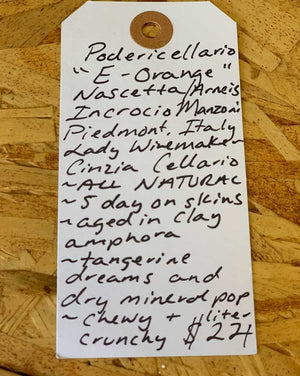 Podericellario
"E-Orange"
Nascetta/Arneis
Incrocio Manzoni
Piedmont, Italy
Lady Winemaker~
Cinzia Cellario
~ALL NATURAL
~5 day on skins
~aged in clay
amphora
~tangerine
dreams and
dry mineral pop
~chewy + liter
crunchy $24